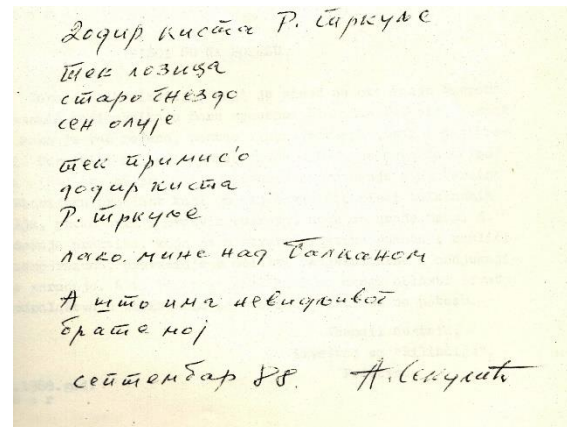 Додир киста Р. Тркуље
тек лозица
старо гнездо
сен олује
тек примис'о
додир киста
Р. Тркуље
лако мине над Балканом
А што има невидљивог
брате мој
септембар 88. А. Секулић